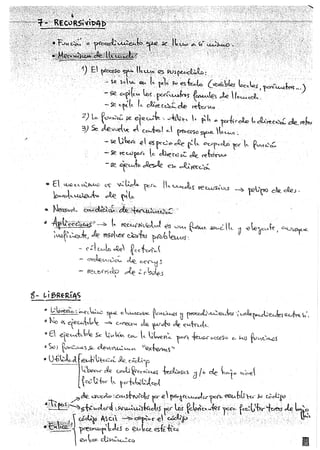 7- RECURSIVIDAD
• Función o procedimiento que se llama a sí mismo.
• Mecanismo de llamada:
1) El proceso que llama es suspendido:
- se salva en la pila su estado (variables locales, parámetros...)
- se apilan los parámetros formales de llamada.
- se apila la dirección de retorno
2) La función se ejecuta: utiliza la pila a partir de la dirección de retorno
3) Se devuelve el control al proceso que llama:
- se libera el espacio de pila ocupado por la función
- se recupera la dirección de retorno
- se ejecuta desde esa dirección
• El mecanismo es válido para llamadas recursivas → peligro de des-
bordamiento de pila
• Necesid. condición de terminación
• Aplicaciones → la recursividad es una forma sencilla y elegante, aunque
ineficiente, de resolver ciertos problemas:
- cálculo del factorial
- ordenación de arrays
- recorrido de árboles
8- LIBRERÍAS
• Librería: archivo que almacena funciones y procedimientos independientes entre sí.
• No es ejecutable → carecen de punto de entrada.
• El ejecutable se linka con la librería para tener acceso a las funciones
• Sus funciones se denominan "externas"
• Utilidad reutilización de código
librerar de codificaciones tediosas y/o de bajo nivel
facilitar la portabilidad
• Tipos de usuario: construidas por el programador para reutilizar su código
estándard: suministradas por los fabricantes para facilitar tareas de bajo
• Enlace código ASCII → copiar el código
precompiladas o enlace estático
enlace dinámico